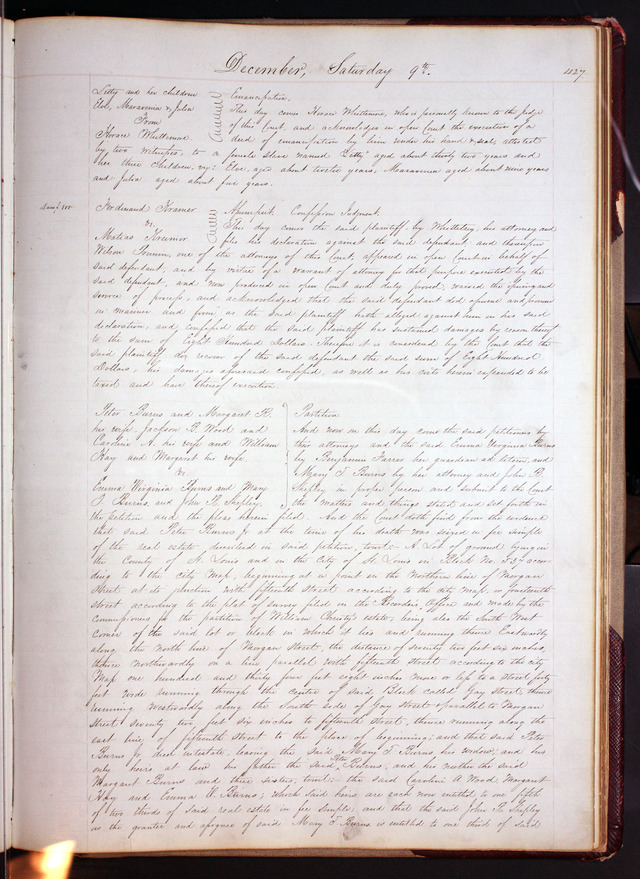 December, Saturday 9th.
427
Letty and her children
Eloe, Maravenia & Julia
From
Horace Whittemore
Emancipation.
This day comes Horace Whittemore, who is personally known to the Judge
of this Court, and acknowledges in open Court the execution of a
deed of emancipation by him under his hand & seal, attested
by two witnesses, to a female Slave named "Letty" aged about thirty two years and
her three children, viz: Eloe, aged about twelve years, Maravenia aged about nine years
and Julia aged about five years.
Ferdinand Kramer
vs.
Matias Kramer
Assumpsit. Confession Judgment.
This day comes the said plaintiff by Whittelsey, his attorney and
files his declaration against the said defendant, and thereupon
Wilson Primm, one of the attorneys of this Court, appeared in open Court on behalf of
said defendant, and by virtue of a warrant of attorney for that purpose executed by the
said defendant, and now produced in open Court and duly proved, waived the issuing and
service of process, and acknowledged that the said defendant did assume and promise
in manner and form as the said plaintiff hath alleged against him in his said
declaration, and confessed that the said plaintiff has sustained damages by reason thereof
to the sum of Eight Hundred Dollars. Therefore it is considered by the Court that the
said plaintiff do recover of the said defendant the said sum of Eight Hundred
Dollars, his damages aforesaid confessed, as well as his costs herein expended to be
taxed and have thereof execution.
Peter Burns and Margaret B.
his wife, Jackson B. Wood and
Caroline A. his wife and William
Hay and Margaret his wife,
vs.
Emma Virginia Burns and Mary
T. Burns, and John R. Shepley.
Partition
And now on this day come the said petitioners by
their attorneys and the said Emma Virginia Burns
by Benjamin Farrar her guardian ad litem, and
Mary T. Burns by her attorney and John R.
Shepley in proper person and submit to the Court
the matters and things stated and set forth in
the petition and the pleas herein filed. And the Court doth find from the evidence
that said Peter Burns Jr at the time of his death was seized in fee simple
of the real estate described in said petition, towit:- A Lot of ground lying in
the County of St. Louis and in the City of St. Louis in Block No. 537 accor-
ding to the City Map, beginning at a point in the Northern line of Morgan
Street at its junction with fifteenth Street according to the City Map, or fourteenth
street according to the plat of survey filed in the Recorder's Office and made by the
commissioners in the partition of William Christy's estate; being also the South West
corner of the said lot or block in which it lies and running thence Eastwardly
along the North line of Morgan Street, the distance of seventy two feet six inches,
thence Northwardly on a line parallel with fifteenth Street according to the City
Map one hundred and thirty four feet eight inches more or less to a street forty
feet wide running through the centre of said Block called Gay street, thence
running westwardly along the South side of Gay Street & parallel to Morgan
Street seventy two feet six inches to fifteenth Street, thence running along the
east line of fifteenth Street to the place of beginning; and that said Peter
Burns Jr died intestate, leaving the said Mary T. Burns his widow; and his
only heirs at law his father the said Peter Burns, and his mother the said
Margaret Burns and three sisters, towit:- the said Caroline A. Wood, Margaret
Hay and Emma V. Burns; which said heirs are each now entitled to one fifth
of two thirds of said real estate in fee simple; and that the said John R. Shepley
as the grantee and assignee of said Mary T. Burns is entitled to one third of said